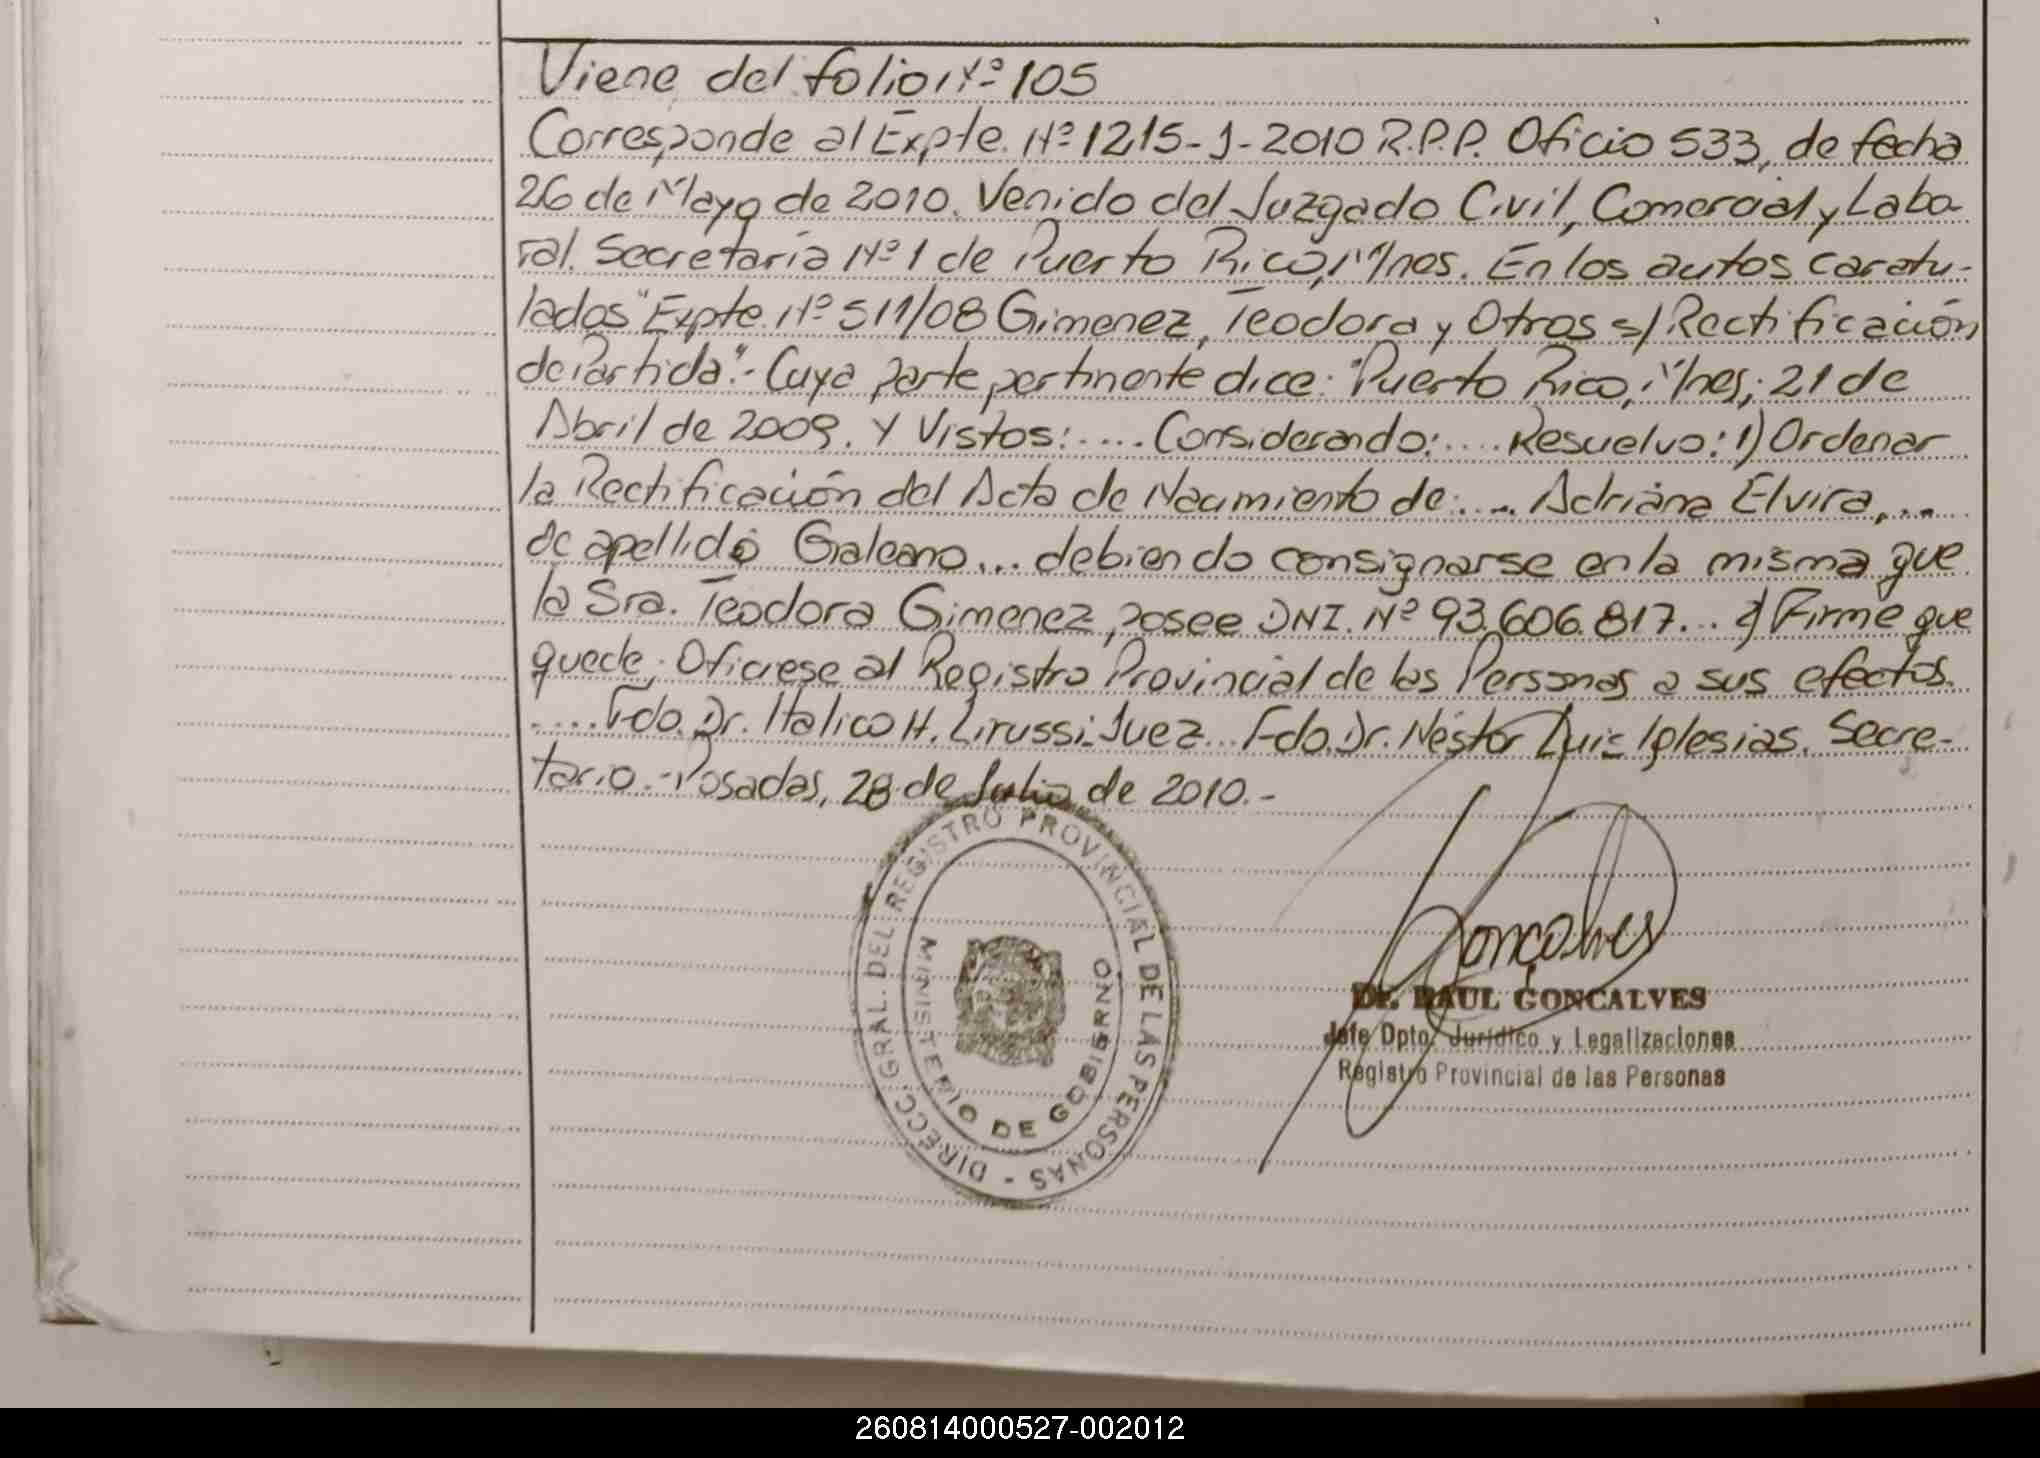 Viene del folio Nº 105
Corresponde al Expte. Nº 1215-J-2010 R.P.P. Oficio 533, de fecha
26 de Mayo de 2010. Venido del Juzgado Civil, Comercial y Labo-
ral. Secretaría Nº 1 de Puerto Rico, Mnes. En los autos caratu-
lados "Expte. Nº 511/08 Gimenez, Teodora y Otros s/ Rectificación
de Partida".- Cuya parte pertinente dice: "Puerto Rico, Mnes; 21 de
Abril de 2009. Y Vistos:.... Considerando:.... Resuelvo: 1) Ordenar
la Rectificación del Acta de Nacimiento de:.... Adriana Elvira,...
de apellido Galeano... debiendo consignarse en la misma que
la Sra. Teodora Gimenez, posee DNI. Nº 93.606.817... 2) Firme que
quede, Ofíciese al Registro Provincial de las Personas a sus efectos.
.....Fdo. Dr. Italico H. Lirussi-Juez... Fdo. Dr. Néstor Luis Iglesias. Secre-
tario.- Posadas, 28 de Julio de 2010.-
DIRECC. GRAL. DEL REGISTRO PROVINCIAL DE LAS PERSONAS -
MINISTERIO DE GOBIERNO
Goncalves
Dr. RAUL GONCALVES
Jefe Dpto. Jurídico y Legalizaciones
Registro Provincial de las Personas
260814000527-002012